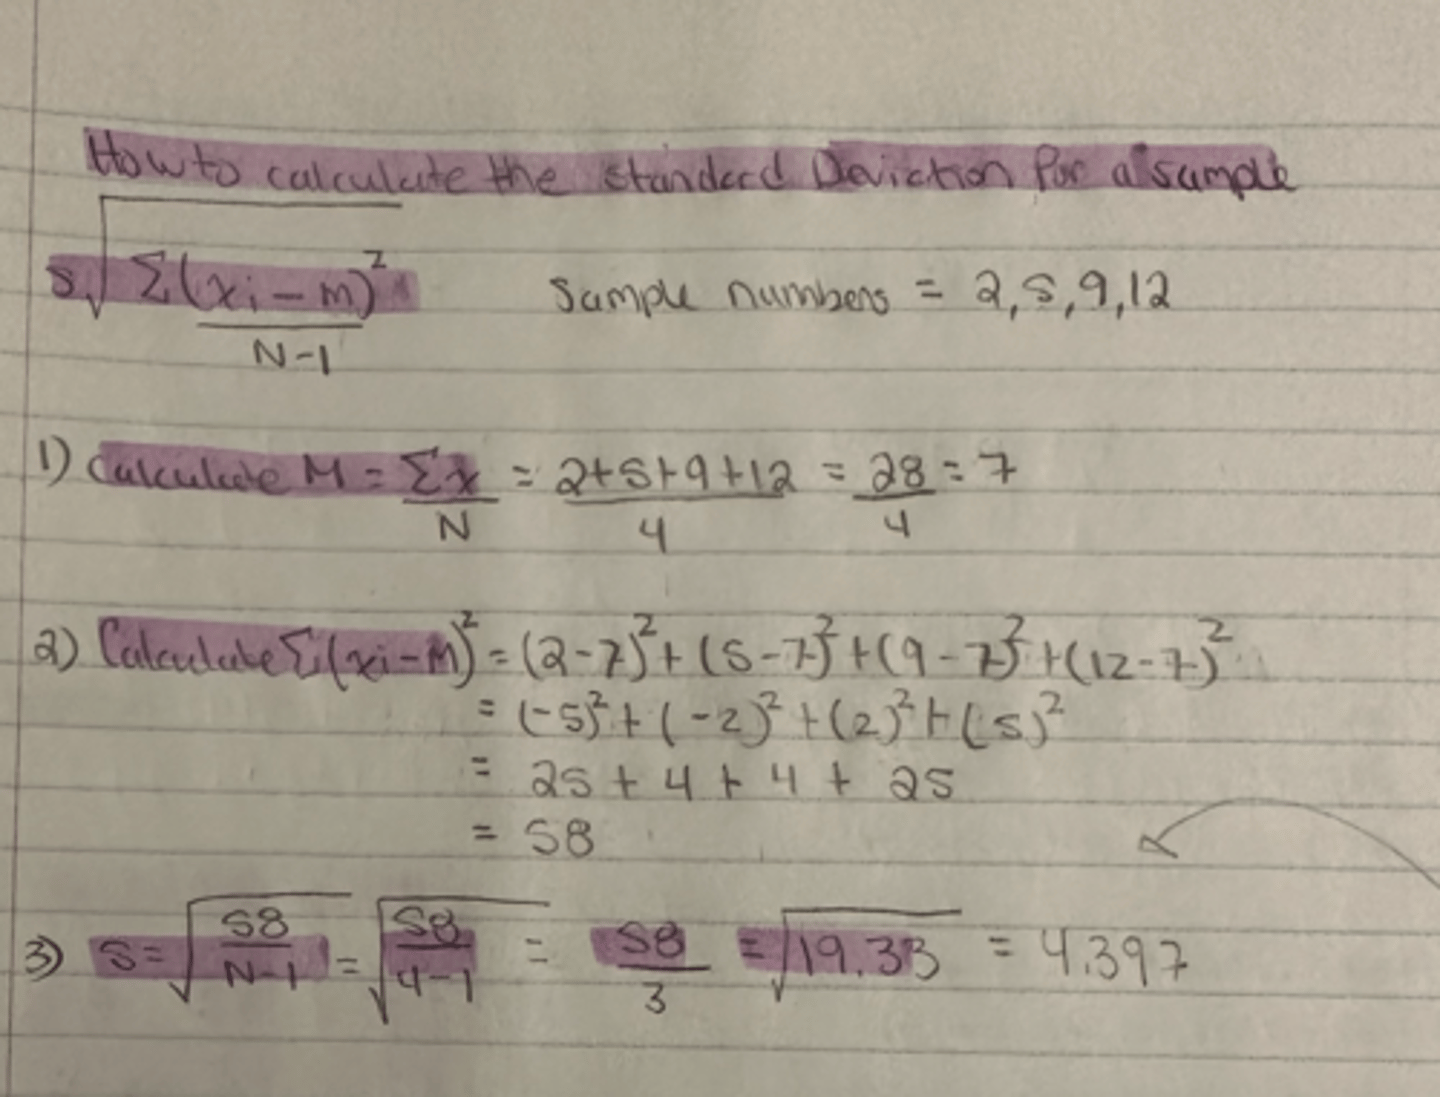 How to calculate the standard Deviation for a sample
s √ Σ(xi - m)² / N-1
Sample numbers = 2, 5, 9, 12
1) Calculate M = Σx / N = 2+5+9+12 / 4 = 28 / 4 = 7
2) Calculate Σ(xi - M)² = (2-7)² + (5-7)² + (9-7)² + (12-7)²
= (-5)² + (-2)² + (2)² + (5)²
= 25 + 4 + 4 + 25
= 58
3) s = √ 58 / N-1 = √ 58 / 4-1 = 58 / 3 = √19.33 = 4.397